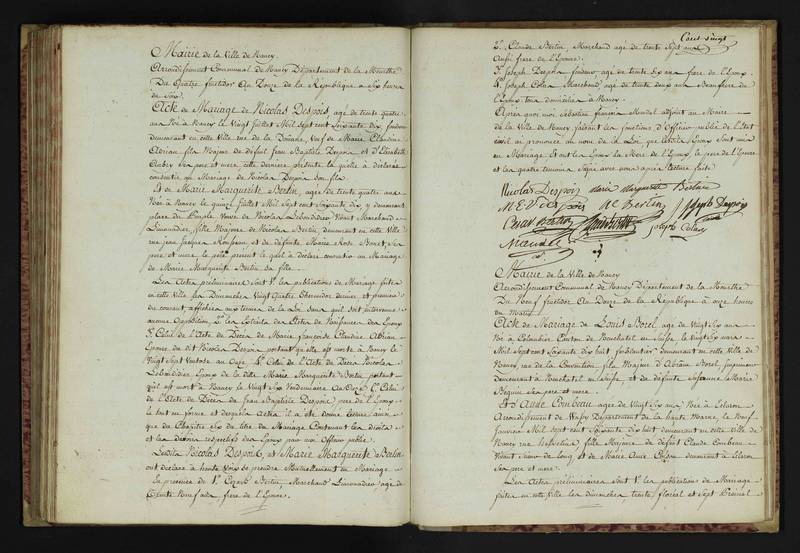 Mairie de la Ville de Nancy.
Arrondissement Communal de Nancy Département de la Meurthe
Du quatre fructidor An Douze de la République à Six heures
de Soir.
Acte de Mariage de Nicolas Despois, agé de trente quatre
ans Né à Nancy le vingt Juillet Mil Sept cent Soixante dix fondeur
demeurant en cette Ville rue de la Douane, Veuf de Marie Claudine
Adrian fils Majeur de défunt Jean Baptiste Despois et d'Elisabeth
Aubry Ses pere et mere cette derniere présente laquelle a déclaré
consentir au Mariage de Nicolas Despois Son fils
Et de Marie Marguerite Bertin, agée de trente quatre ans
Née à Nancy le quinze Juillet Mil Sept cent Soixante dix y demeurant
place du Peuple Veuve de Nicolas Lebondidier Vivant Marchand
Limonadier, fille Majeure de Nicolas Bertin, demeurant en cette Ville
rue Jean Jacques Rousseau et de défunte Marie Rose Ses
pere et mere, le pere présent lequel a déclaré consentir au Mariage
de Marie Marguerite Bertin Sa fille
Les Actes préliminaires Sont 1.° les publications de Mariage faites
en cette Ville les Dimanches Vingt quatre Thermidor dernier et premier
du courant affichées aux termes de la Loi Sans qu'il Soit intervenu
aucune Opposition 2.° les Extraits des Actes de Naissance des Epoux
3.° Celui de l'Acte de Décès de Marie Claudine Adrian
Epouse du dit Nicolas Despois portant qu'elle est morte à Nancy le
Vingt Sept Ventose an Onze 4.° Celui de l'Acte de Décès Nicolas
Lebondidier Epoux de la dite Marie Marguerite Bertin portant
qu'il est mort à Nancy le Vingt Six Vendemiaire An Douze 5.° Celui
de l'Acte de Décès de Jean Baptiste Despois pere de l'Epoux
le tout en forme et desquels Actes il a été donné lecture ainsi
que du Chapitre Six du titre du Mariage Contenant les droits
et les devoirs respectifs des Epoux par moi Officier public.
Lesdits Nicolas Despois, et Marie Marguerite Bertin
ont déclaré à haute Voix se prendre Mutuellement en Mariage
En présence de 1.° Bertin, Marchand Limonadier agé de
trente Neuf ans, frere de l'Epouse.
Cent vingt
2.° Claude Bertin, Marchand agé de trente Sept ans
aussi frere de l'Epouse.
3.° Joseph Despois fondeur agé de trente Six ans frere de l'Epoux
4.° Joseph Colas Marchand, agé de trente deux ans Beaufrere de
l'Epoux tous domiciliés à Nancy.
Après quoi moi Sébastien Mandel adjoint au Maire
de la Ville de Nancy, faisant les fonctions d'Officier public de l'Etat
civil ai prononcé au nom de la Loi que lesdits Epoux Sont unis
en Mariage Et ont les Epoux la Mere de l'Epoux, le pere de l'Epouse
et les quatre temoins Signé avec moi après lecture faite.
Nicolas Despois marie marguerite Bertin
M.E.V. despois NC Bertin J Joseph Despois
Bertin
joseph Colas
Mandel
Mairie de la Ville de Nancy
Arrondissement Communal de Nancy Département de la Meurthe
Du Neuf fructidor An Douze de la République à onze heures
du Matin
Acte de Mariage de Louis Borel, agé de Vingt Six ans
Né à Colombier Canton de Neuchatel en Suisse, le Vingt Six
Mil Sept cent Soixante dix huit demeurant en cette Ville de
Nancy rue de la Constitution fils Majeur d'Abram Borel, Imprimeur
demeurant à Neuchatel en Suisse, et de défunte Susanne Marie
Beguin Ses pere et mere.
Et d'Aude Combeau agée de Vingt Six ans Née à
Arrondissement de Wassy Département de la haute Marne, le Neuf
Janvier Mil Sept cent Soixante dix huit demeurant en cette Ville de
Nancy rue Helvetius fille Majeure de défunt Claude Combeau
Vivant de long et de Marie Anne demeurant à
Ses pere et mere.
Les Actes préliminaires Sont 1.° les publications de Mariage
faites en cette Ville les dimanches, trente floréal et Sept Prairial